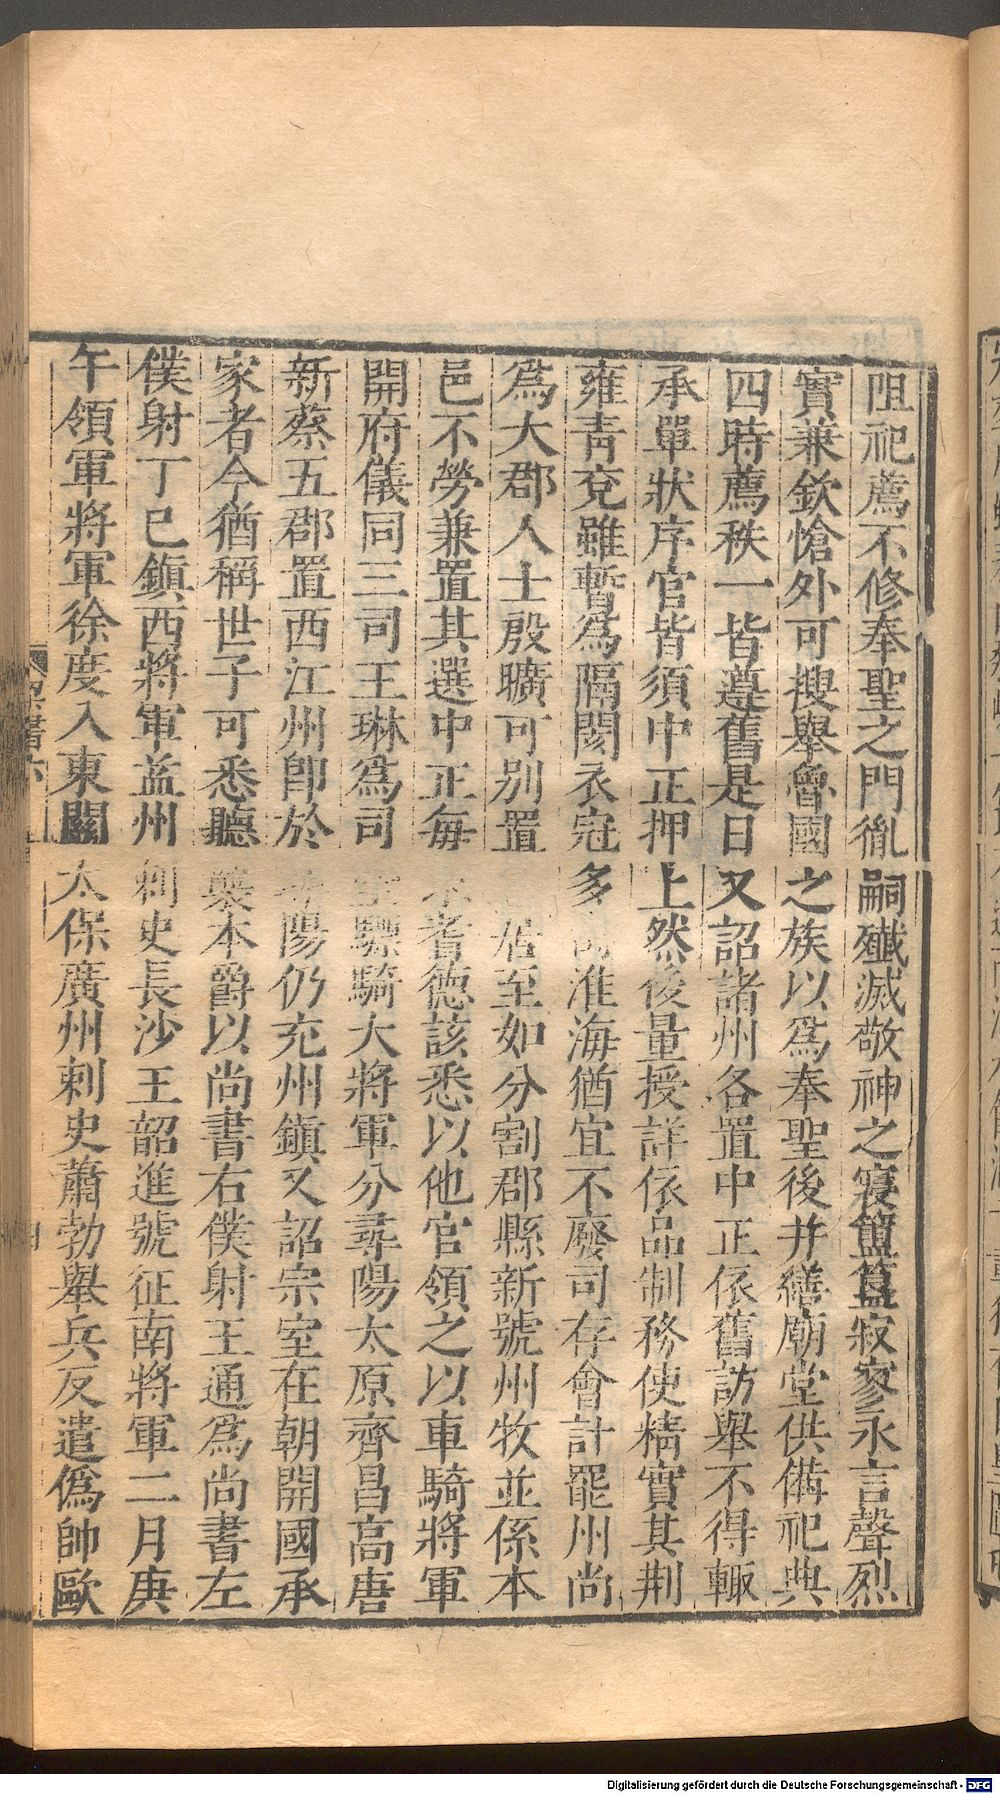 阻祀薦不修奉聖之門胤嗣殲滅敬神之寢簠簋寂寥永言聲烈
實兼欽愴外可搜舉魯國之族以爲奉聖後并繕廟堂供備祀典
四時薦秩一皆遵舊是日又詔諸州各置中正依舊訪舉不得輒
承單狀序官皆須中正押上然後量授詳依品制務使精實其荆
雍青兗雖暫爲隔閡衣冠多淮海猶宜不廢司存會計罷州尚
爲大郡人士殷曠可别置居至如分割郡縣新號州牧並係本
邑不勞兼置其選中正每耆德該悉以他官領之以車騎將軍
開府儀同三司王琳爲司驃騎大將軍分尋陽太原齊昌高唐
新蔡五郡置西江州即於陽仍充州鎮又詔宗室在朝開國承
家者今猶稱世子可悉聽襲本爵以尚書右僕射王通爲尚書左
僕射丁巳鎮西將軍益州刺史長沙王韶進號征南將軍二月庚
午領軍將軍徐度入東關太保廣州刺史蕭勃舉兵反遣僞帥歐
Digitalisierung gefördert durch die Deutsche Forschungsgemeinschaft - DFG